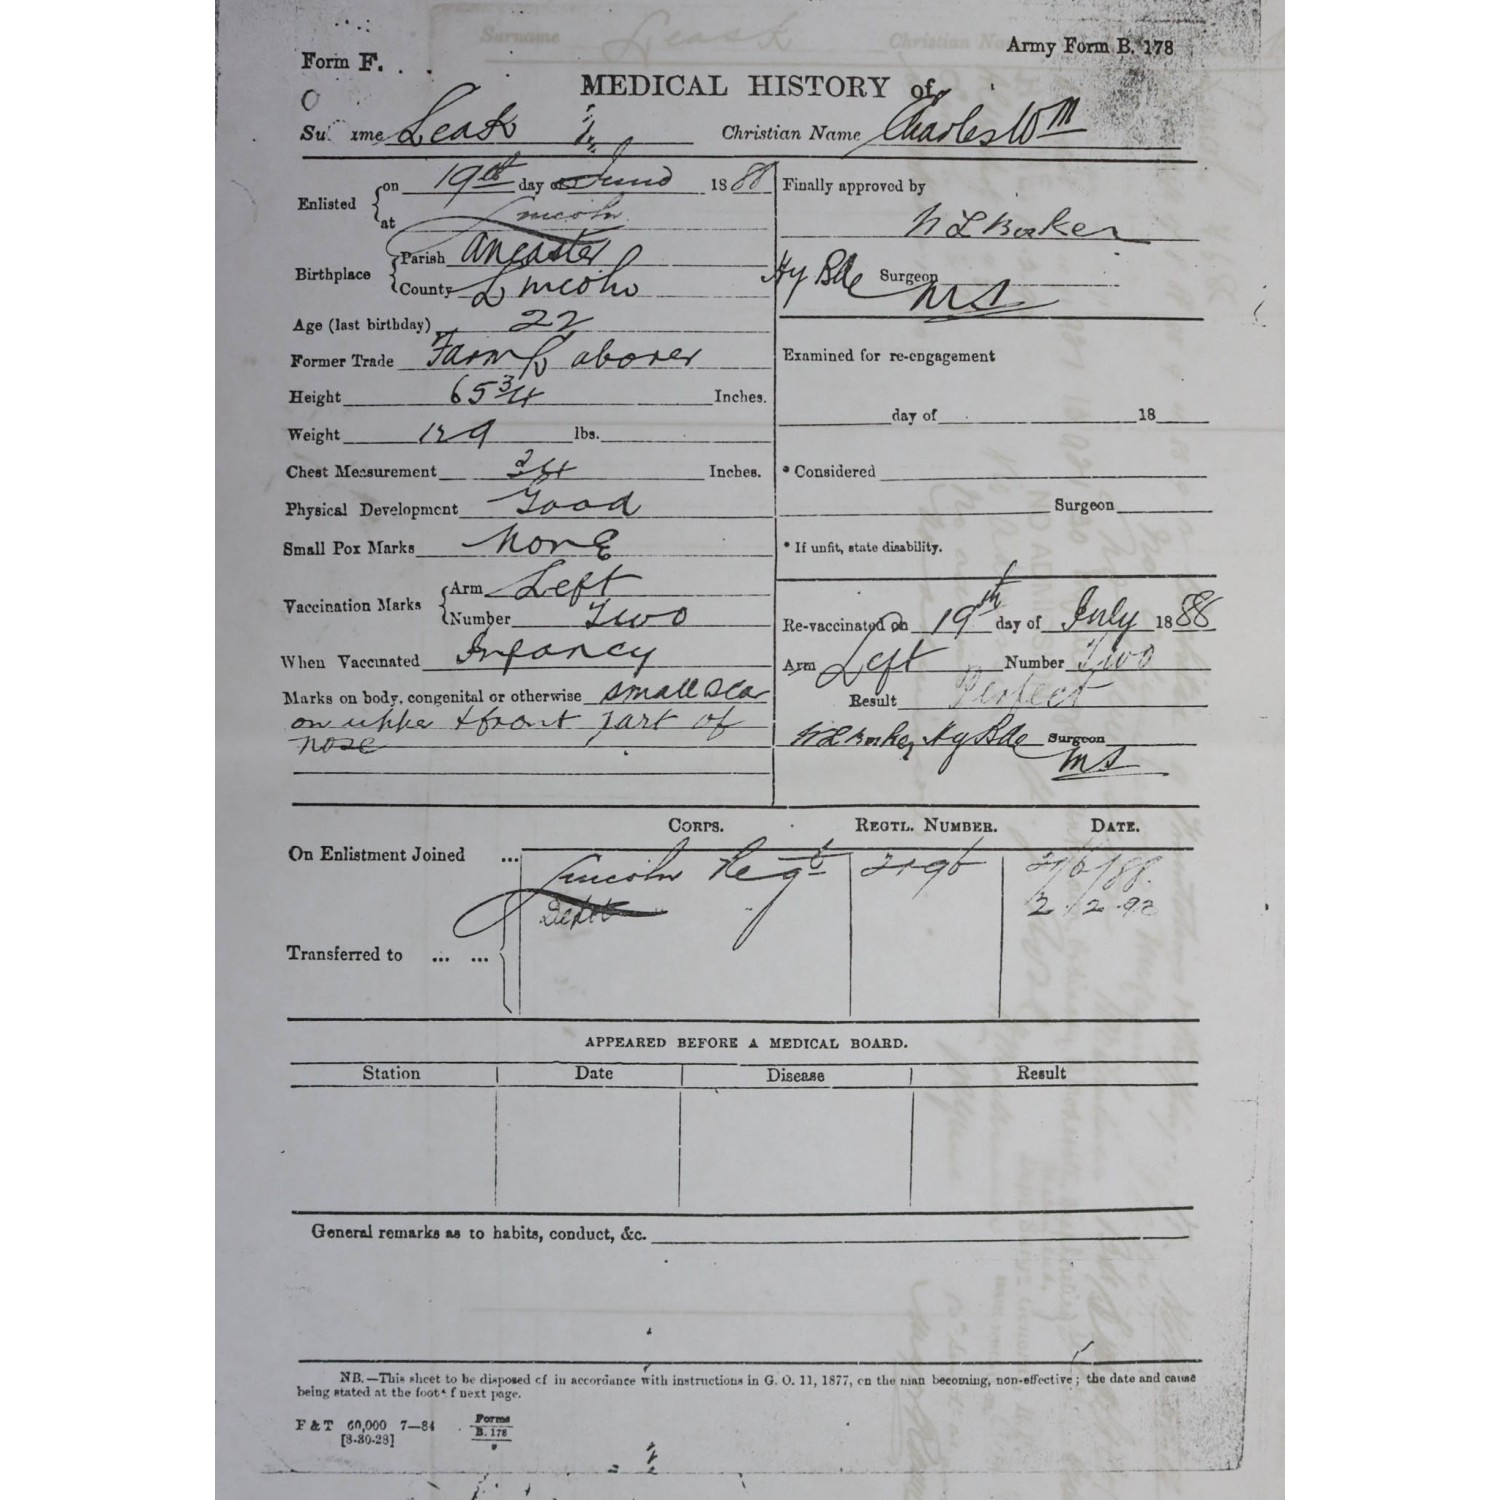 Form F.
Army Form B. 178
MEDICAL HISTORY of
Surname Leask Christian Name Charles Wm
Enlisted on 19th day of June 1888
at Lincoln
Birthplace Parish Ancaster
County Lincoln
Age (last birthday) 22
Former Trade Farm Laborer
Height 65 3/4 Inches.
Weight 129 lbs.
Chest Measurement 34 Inches.
Physical Development Good
Small Pox Marks None
Vaccination Marks Arm Left
Number Two
When Vaccinated Infancy
Marks on body, congenital or otherwise small scar
on upper & front part of
nose
Finally approved by
Surgeon
MS
Examined for re-engagement
day of 18
* Considered
Surgeon
* If unfit, state disability.
Re-vaccinated on 19th day of July 1888
Arm Left Number Two
Result Perfect
Surgeon
MS
CORPS. REGTL. NUMBER. DATE.
On Enlistment Joined ... Lincoln Regt 2/6/88.
Depot 2.12.92
Transferred to ... ...
APPEARED BEFORE A MEDICAL BOARD.
Station Date Disease Result
General remarks as to habits, conduct, &c.
NB.—This sheet to be disposed of in accordance with instructions in G. O. 11, 1877, on the man becoming, non-effective; the date and cause
being stated at the foot of next page.
F & T 60,000 7—84 Forms
[8-30-28] B. 178